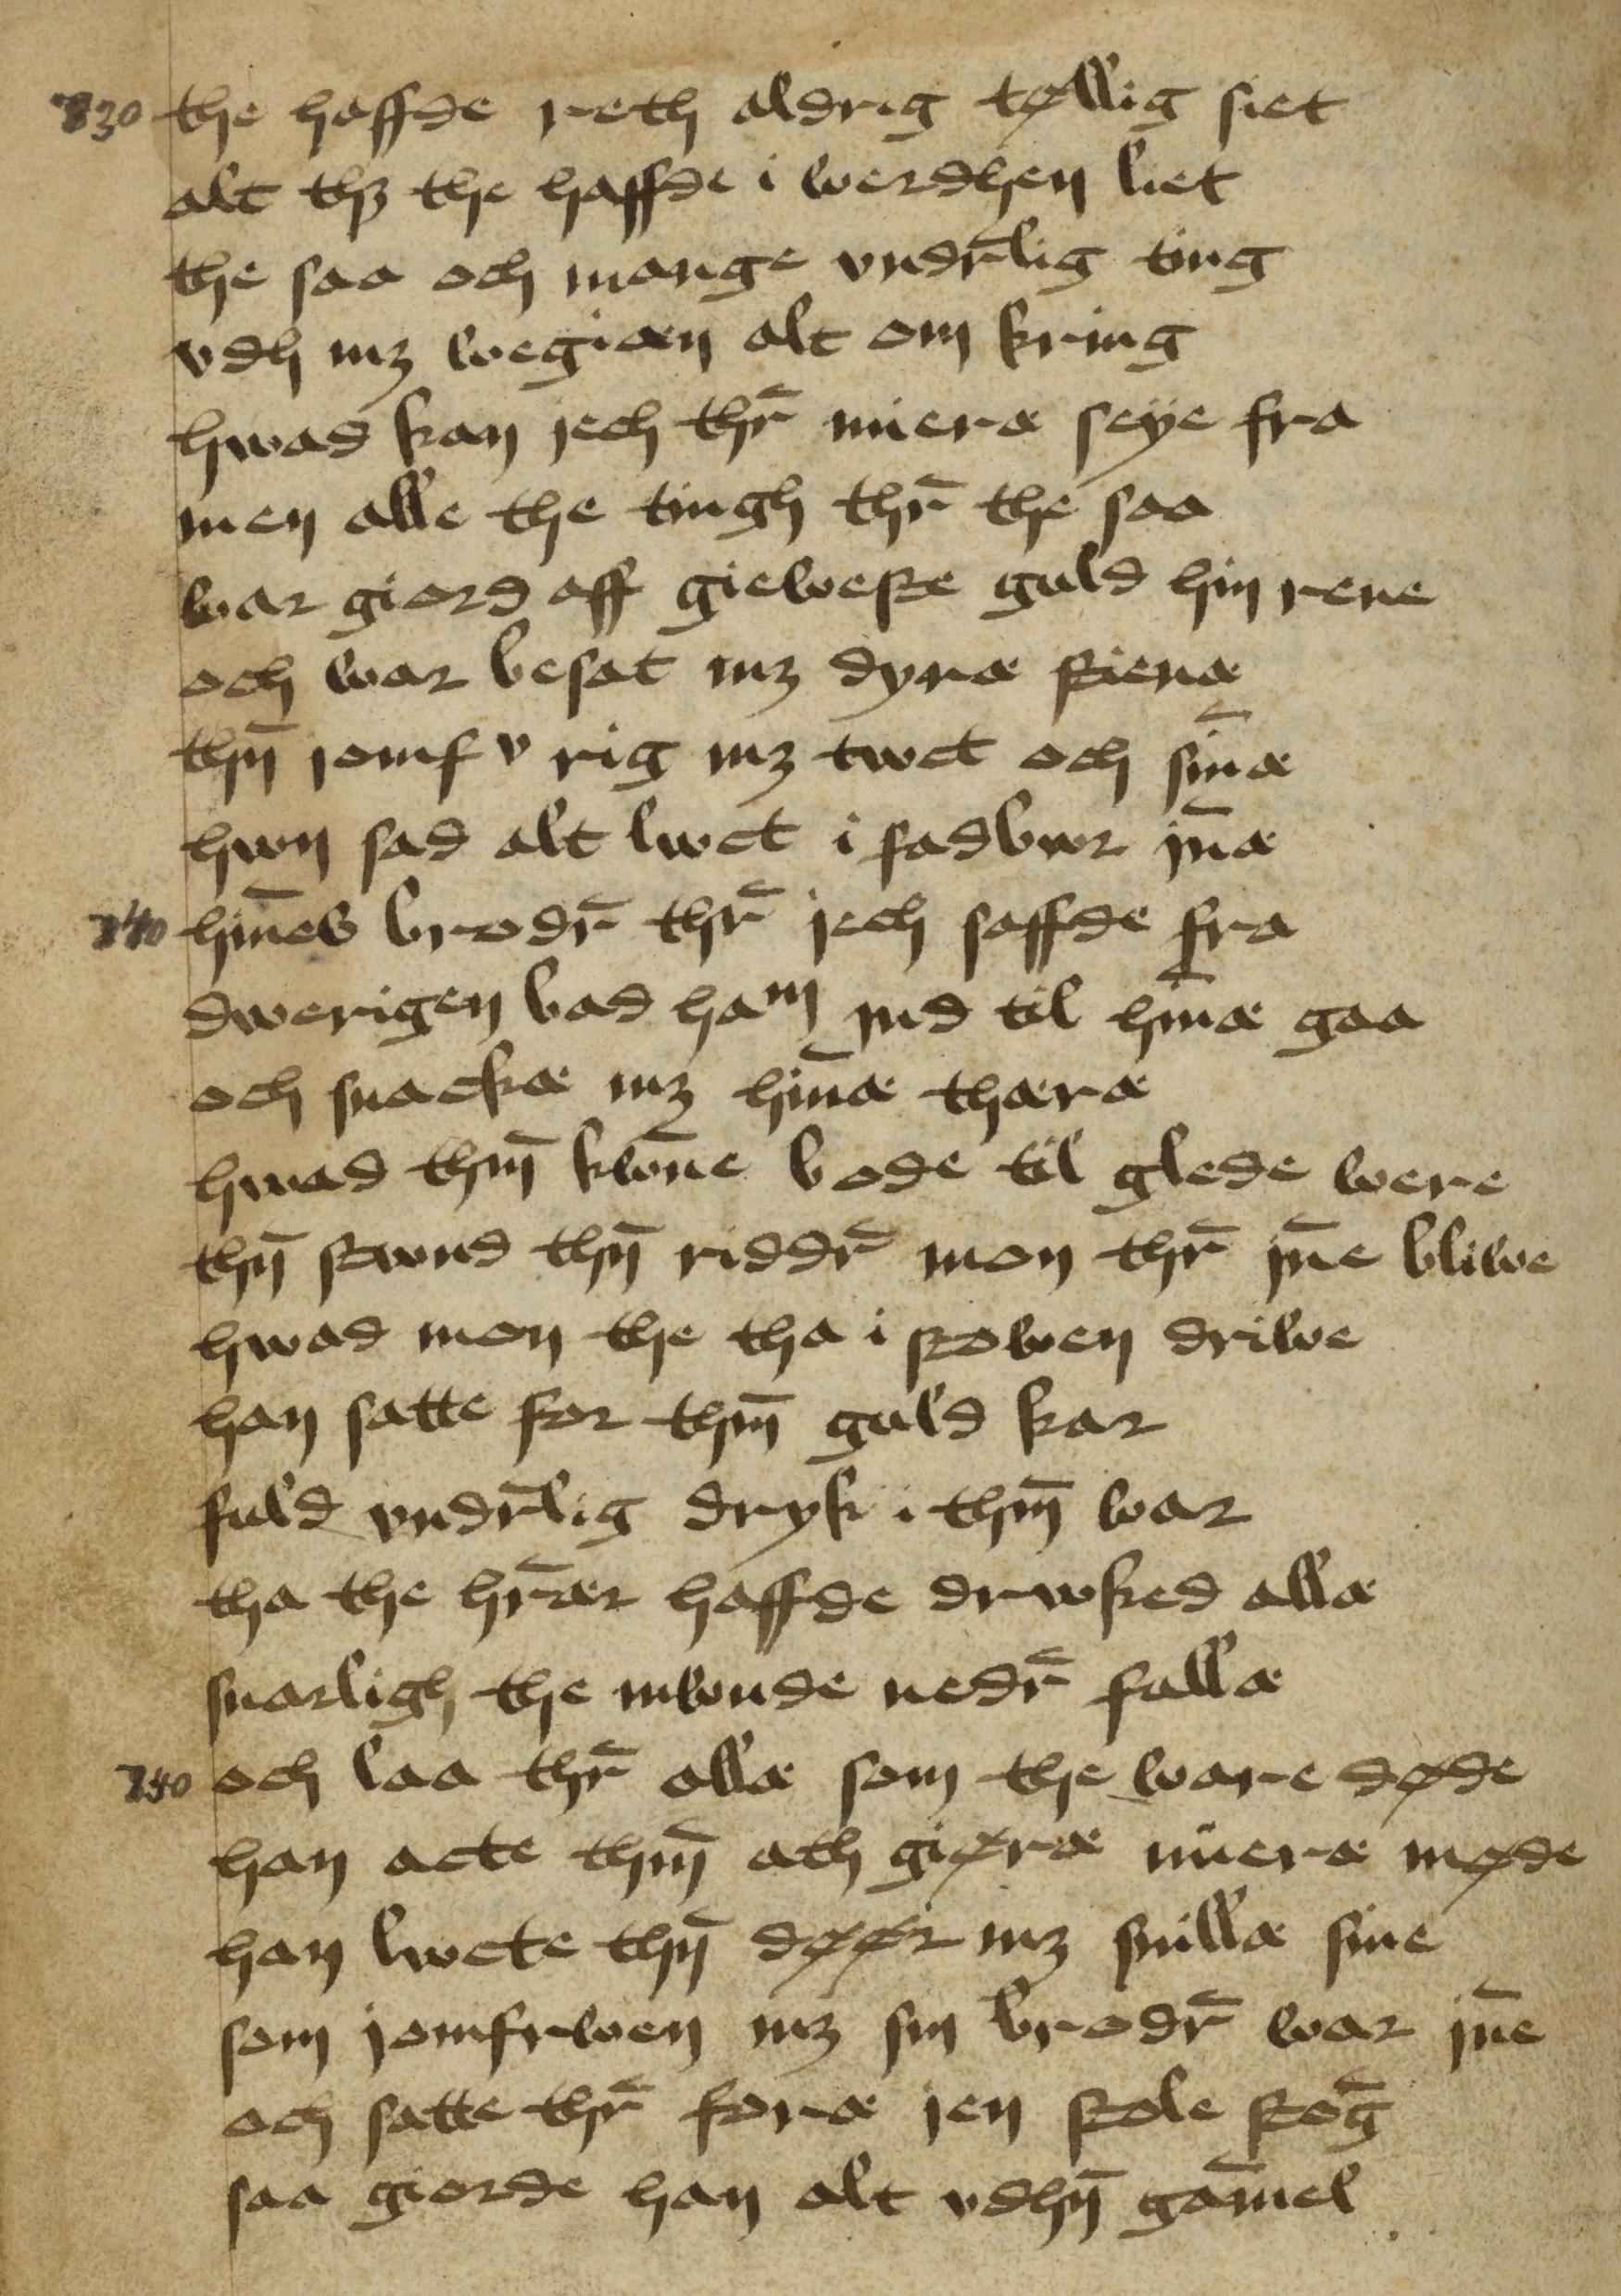 830 the haffde reth aldrig tøllig siet
alt thꝫ the haffde i werdhen liet
the saa och mange vndr̄lig ting
vdh mꝫ wegiæn alt om kring
hwad kan iech thr̄ mieræ seye fra
men alle the tingh thr̄ the saa
war giord aff gieweste guld hin rene
och war besat mꝫ dyræ stienæ
thn̄ iomfv rig mꝫ twct och sin̄æ
hwn sad alt lwct i fadbwr in̄æ
840 hin̄es brodr̄ thr̄ iech saffde fra
dwerigen bad ham ind til hin̄æ gaa
och snackæ mꝫ hin̄æ thæræ
hwad thm̄ kwn̄e bode til glede were
thn̄ stwnd thn̄ riddr̄ mon thr̄ in̄e bliwe
hwad mon the tha i stowen driwe
han satte for thm̄ guld kar
fuld vndr̄lig dryk i thm̄ war
tha the hr̄ær haffde drwked allæ
snarligh the mwnde nedr̄ fallæ
850 och laa thr̄ allæ som the ware døde
han acte thm̄ ath giøræ mieræ møde
han lwcte thn̄ døør mꝫ snillæ sine
som iomfrwen mꝫ sin brodr̄ war in̄e
och satte thr̄ foræ ien stole stōg
saa giorde han alt vdhn̄ gam̄el